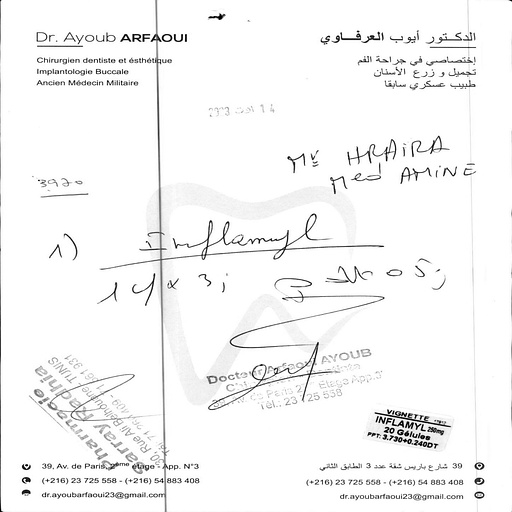 Dr. Ayoub ARFAOUI
Chirurgien dentiste et ésthétique
Implantologie Buccale
Ancien Médecin Militaire
الدكتور أيوب العرفاوي
إختصاصي في جراحة الفم
تجميل و زرع الأسنان
طبيب عسكري سابقا
14 أوت 2023
Mr HRAIRA
Med AMINE
3970
1) Inflamyl
Docteur Arfaoui AYOUB
Tél.: 23 725 558
Pharmacie
Sarray Radhia
VIGNETTE
INFLAMYL 250mg
20 Gélules
PPT: 3.730+0.240DT
39, Av. de Paris, 2ème étage - App. N°3
(+216) 23 725 558 - (+216) 54 883 408
dr.ayoubarfaoui23@gmail.com
39 شارع باريس شقة عدد 3 الطابق الثاني
(+216) 23 725 558 - (+216) 54 883 408
dr.ayoubarfaoui23@gmail.com